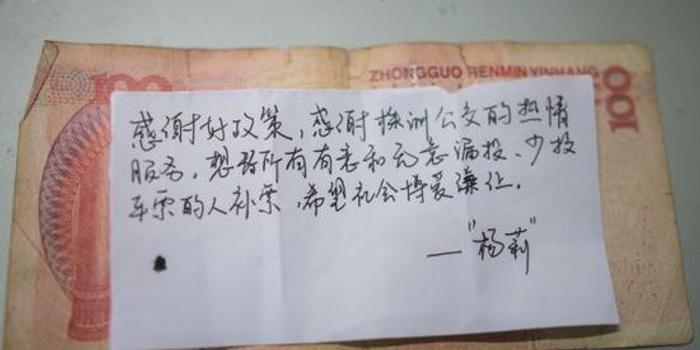 ZHONGGUO RENMIN YINHANG
100
100
感谢好政策，感谢株洲公交的热情
服务，想替所有有意和无意漏投、少投
车票的人补票，希望社会博爱谦让。
—"杨莉"